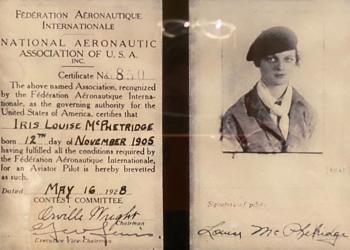 FÉDÉRATION AÉRONAUTIQUE
INTERNATIONALE
NATIONAL AERONAUTIC
ASSOCIATION OF U.S.A.
INC.
Certificate No. 850
The above named Association, recognized
by the Fédération Aéronautique Interna-
tionale, as the governing authority for the
United States of America, certifies that
IRIS LOUISE McPHETRIDGE
born 12TH day of NOVEMBER 1905
having fulfilled all the conditions required by
the Fédération Aéronautique Internationale,
for an Aviator Pilot is hereby brevetted
as such.
Dated MAY 16 1928
CONTEST COMMITTEE
Orville Wright
Chairman
Executive Vice-Chairman
Signature of pilot
Louise McPhetridge